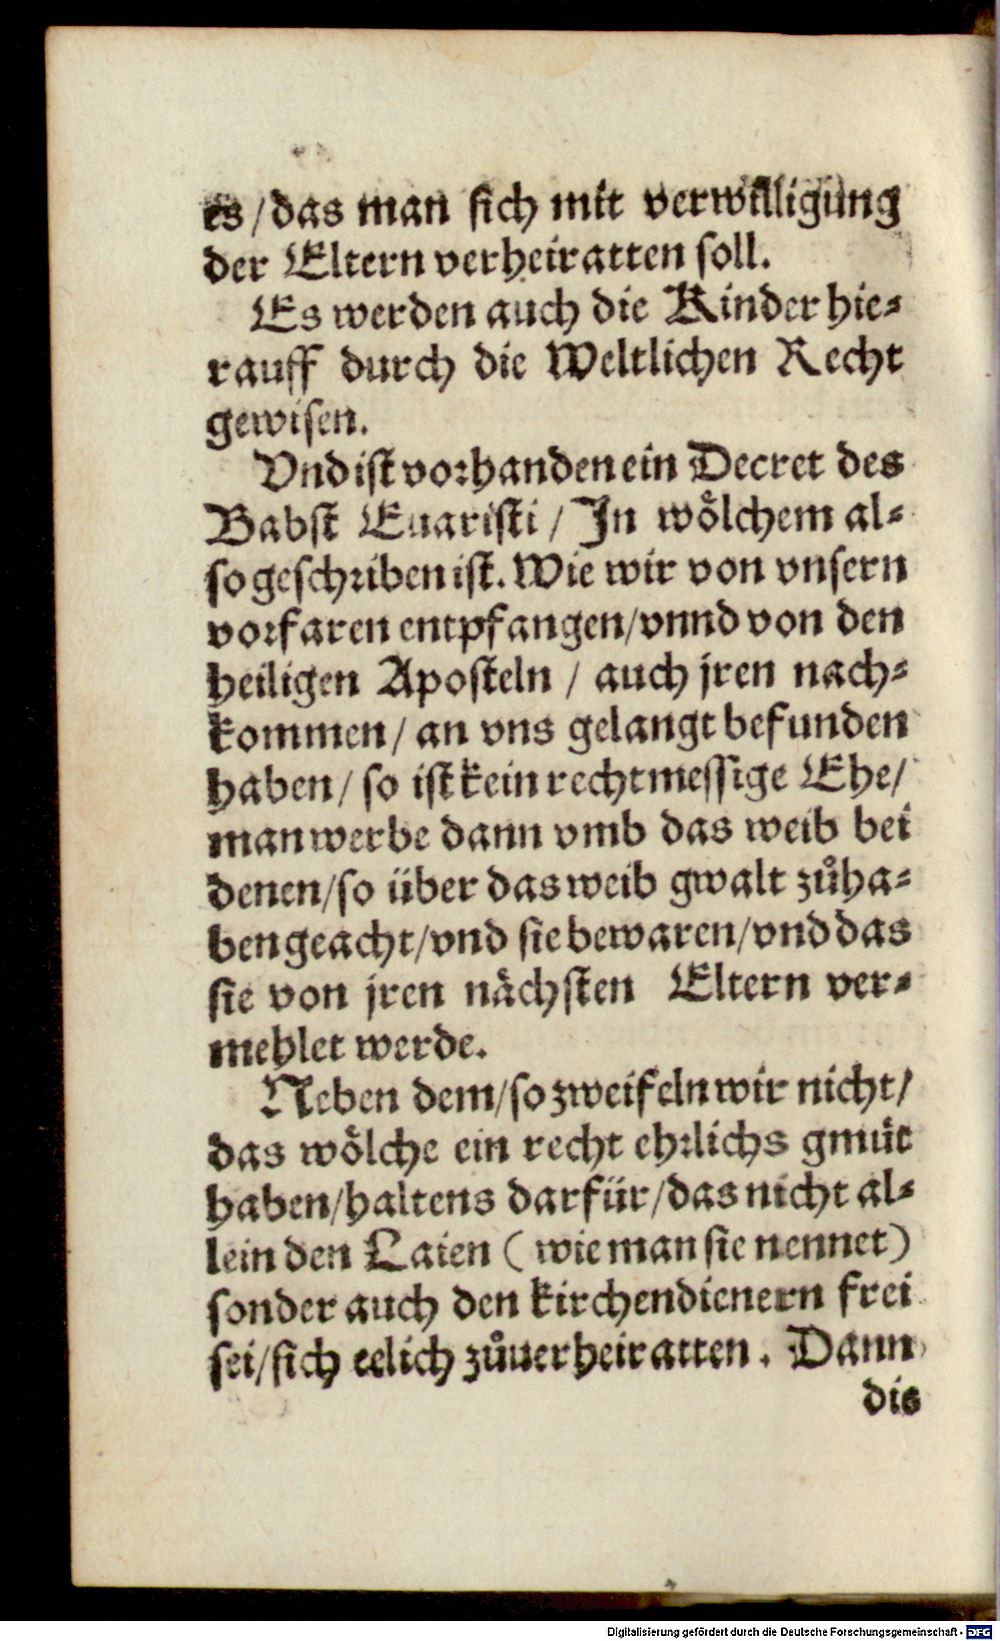 es / das man sich mit verwilligung
der Eltern verheiratten soll.
Es werden auch die Kinder hie⸗
rauff durch die Weltlichen Recht
gewisen.
Vnd ist vorhanden ein Decret des
Babst Euaristi / In wölchem al⸗
so geschriben ist. Wie wir von vnsern
vorfaren entpfangen / vnnd von den
heiligen Aposteln / auch jren nach⸗
kommen / an vns gelangt befunden
haben / so ist kein rechtmessige Ehe /
man werbe dann vmb das weib bei
denen / so über das weib gwalt zůha⸗
ben geacht / vnd sie bewaren / vnd das
sie von jren nächsten Eltern ver⸗
mehlet werde.
Neben dem / so zweifeln wir nicht /
das wölche ein recht ehrlichs gmüt
haben / haltens darfür / das nicht al⸗
lein den Laien ( wie man sie nennet )
sonder auch den kirchendienern frei
sei / sich eelich zůuerheiratten. Dann
dis
Digitalisierung gefördert durch die Deutsche Forschungsgemeinschaft - DFG